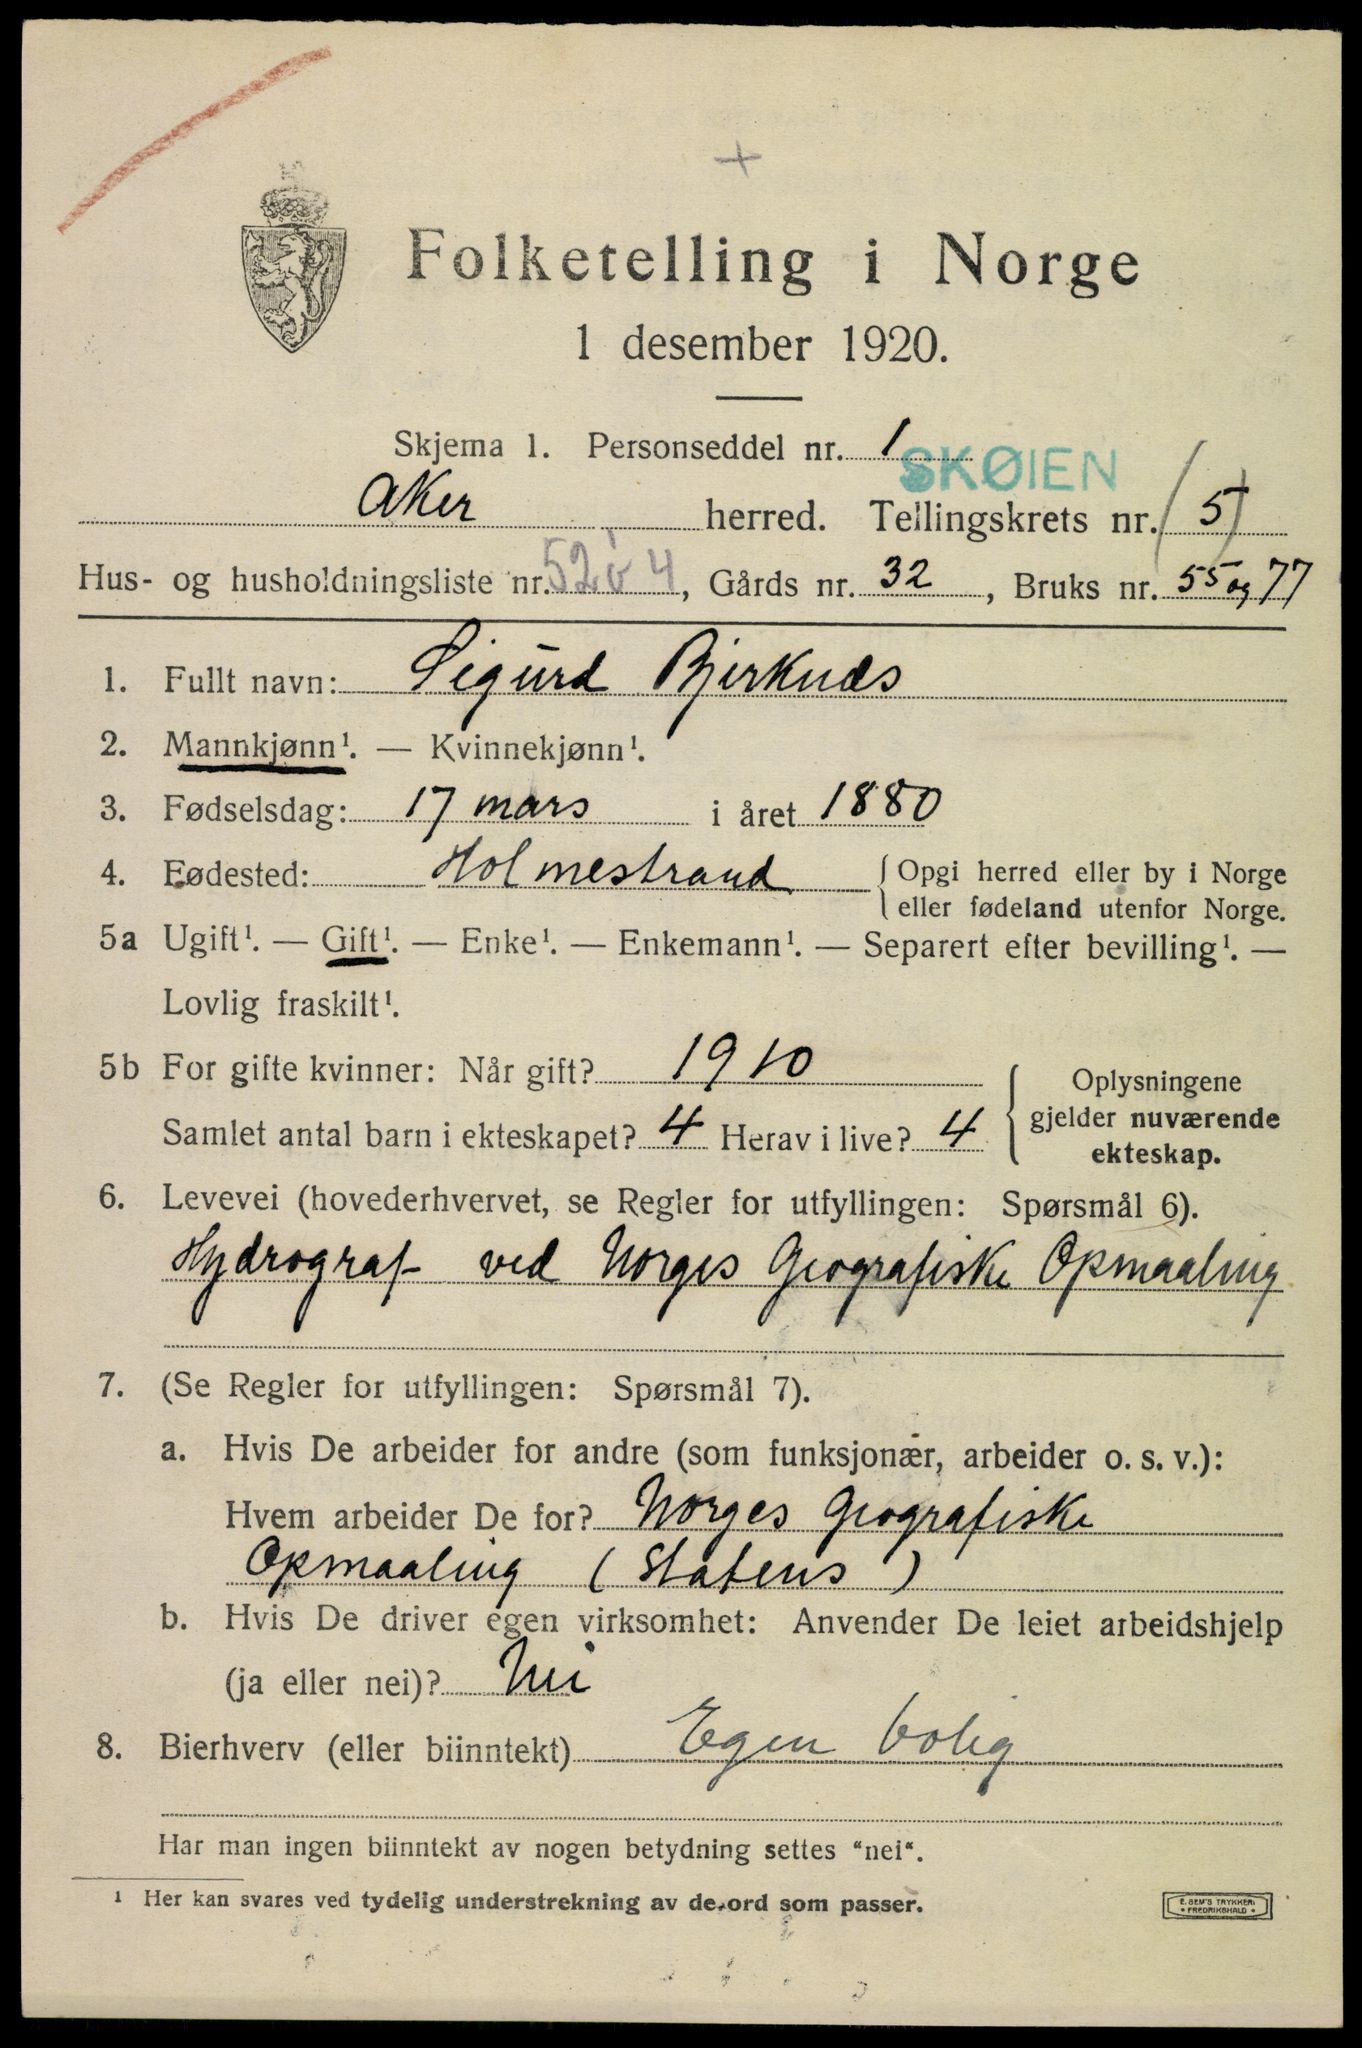 +
Folketelling i Norge
1 desember 1920.
Skjema 1. Personseddel nr. 1
SKØIEN
Aker herred. Tellingskrets nr. (5)
Hus- og husholdningsliste nr. 52 4, Gårds nr. 32, Bruks nr. 55 og 77
1. Fullt navn: Sigurd Bjerknæs
2. Mannkjønn¹. — Kvinnekjønn¹.
3. Fødselsdag: 17 mars i året 1880
4. Fødested: Holmestrand { Opgi herred eller by i Norge
eller fødeland utenfor Norge.
5a Ugift¹. — Gift¹. — Enke¹. — Enkemann¹. — Separert efter bevilling¹. —
Lovlig fraskilt¹.
5b For gifte kvinner: Når gift? 1910
Samlet antal barn i ekteskapet? 4 Herav i live? 4
{ Oplysningene
gjelder nuværende
ekteskap.
6. Levevei (hovederhvervet, se Regler for utfyllingen: Spørsmål 6).
Hydrograf ved Norges Geografiske Opmaaling
7. (Se Regler for utfyllingen: Spørsmål 7).
a. Hvis De arbeider for andre (som funksjonær, arbeider o. s. v.):
Hvem arbeider De for? Norges Geografiske
Opmaaling (Statens)
b. Hvis De driver egen virksomhet: Anvender De leiet arbeidshjelp
(ja eller nei)? Nei
8. Bierhverv (eller biinntekt) Egen bolig
Har man ingen biinntekt av nogen betydning settes "nei".
¹ Her kan svares ved tydelig understrekning av de ord som passer.
E. SEM'S TRYKKERI
• FREDRIKSHALD •